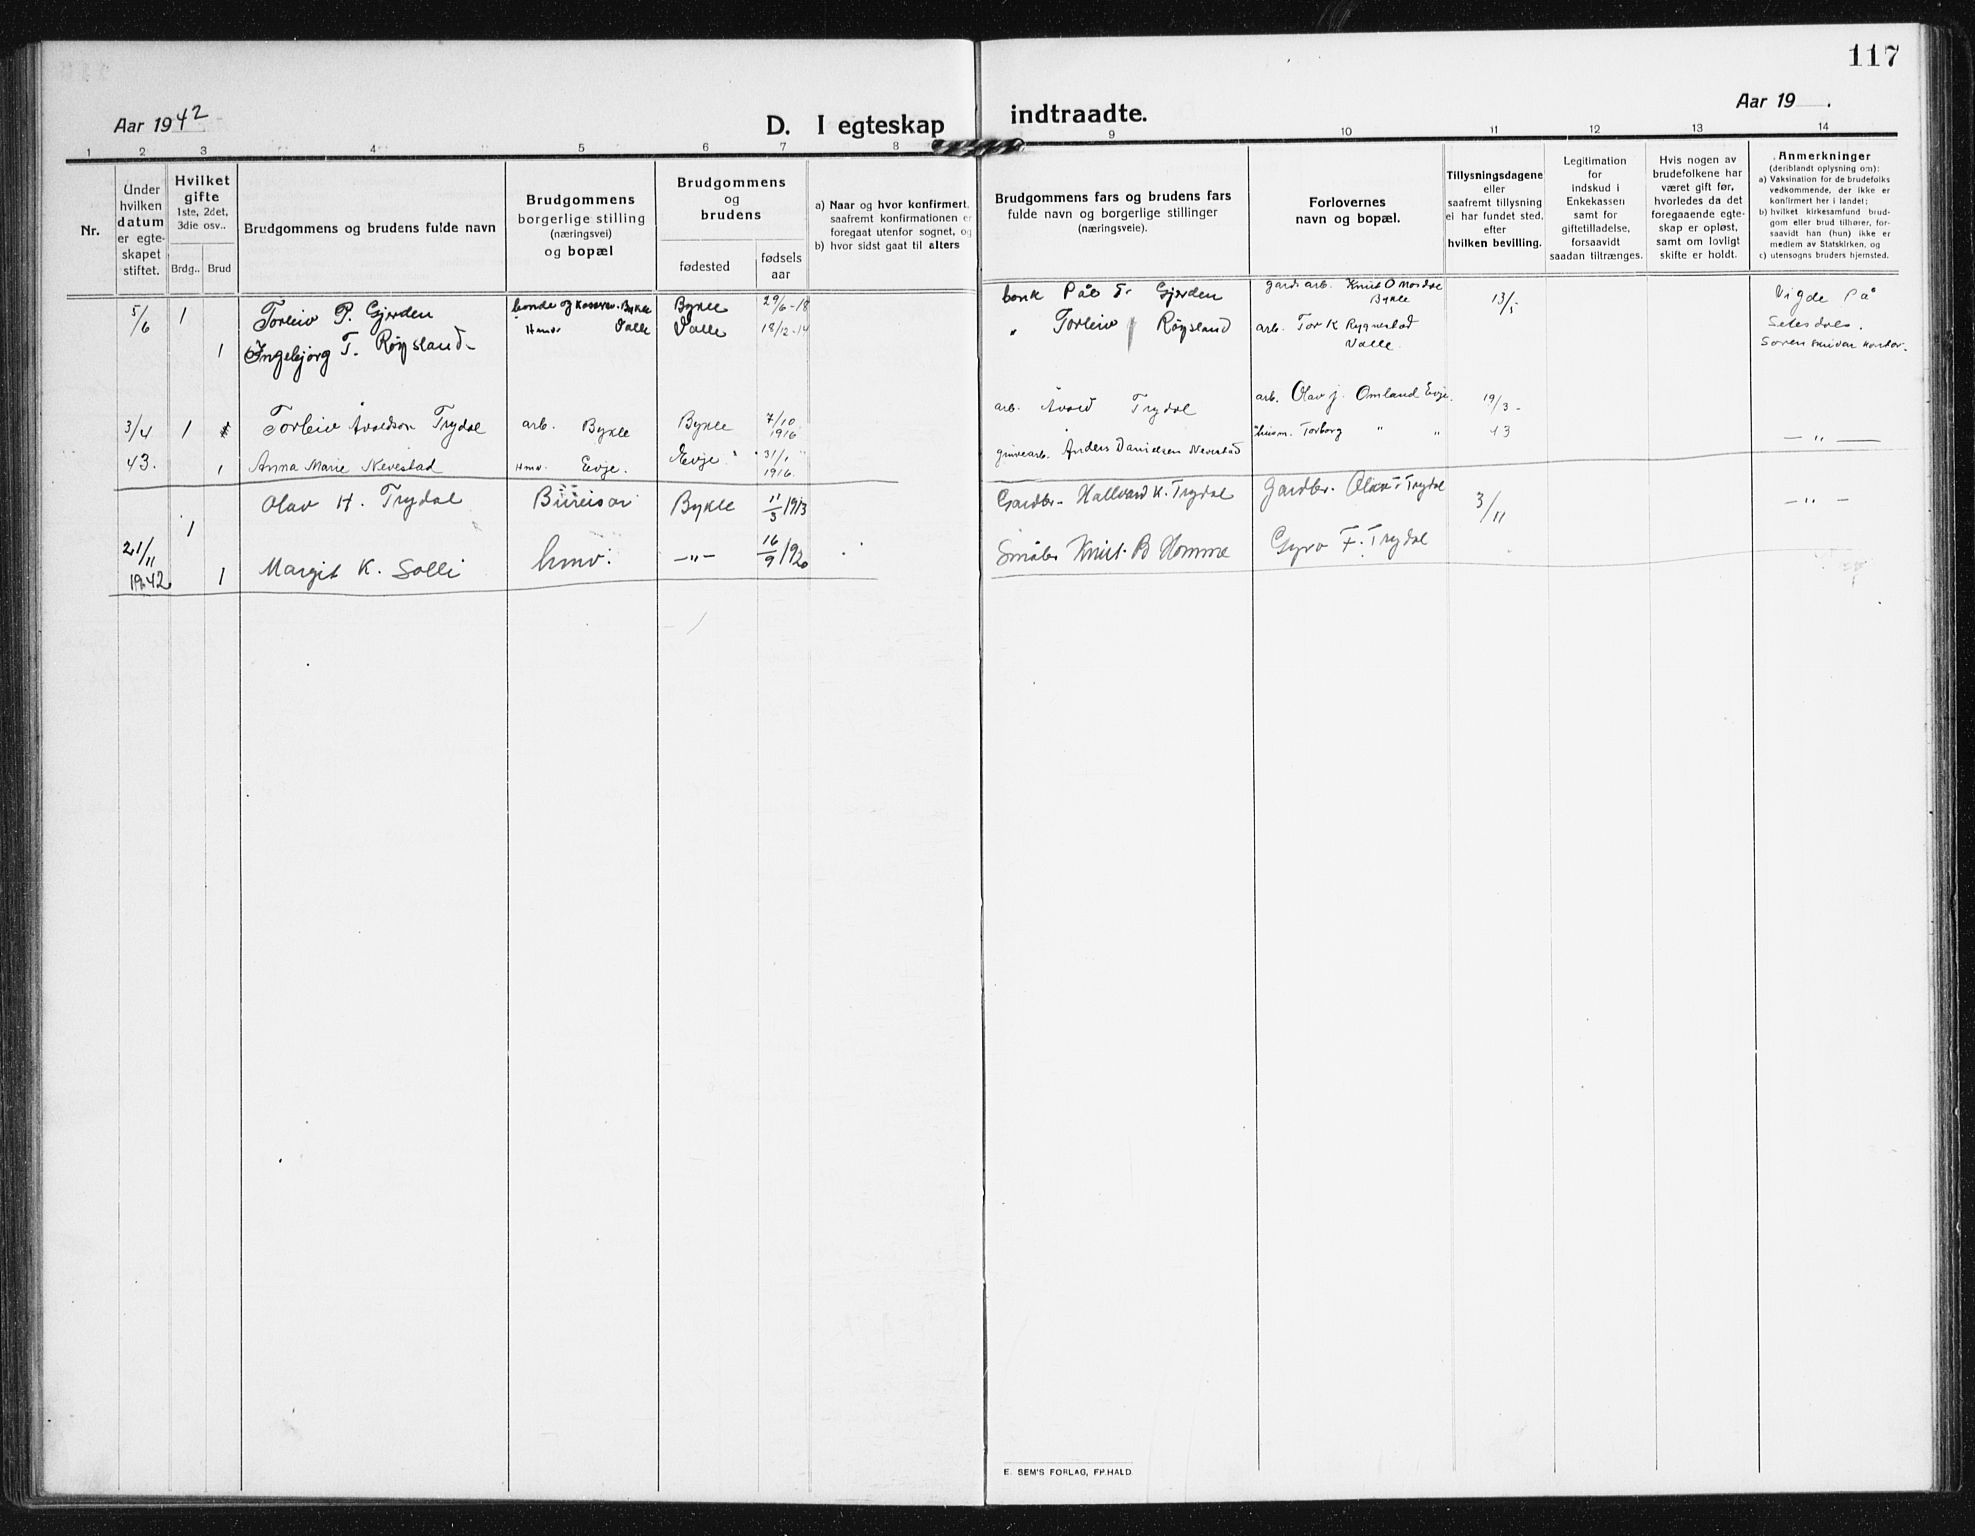 117
Aar 1942
D. I egteskap indtraadte.
Aar 19 .
1 2 3 4 5 6 7 8 9 10 11 12 13 14
Nr.
Under
hvilken
datum
er egte-
skapet
stiftet.
Hvilket
gifte
1ste, 2det,
3die osv..
Brdg..
Brud
Brudgommens og brudens fulde navn
Brudgommens
borgerlige stilling
(næringsvei)
og bopæl
Brudgommens
og
brudens
fødested
fødsels
aar
a) Naar og hvor konfirmert,
saafremt konfirmationen er
foregaat utenfor sognet, og
b) hvor sidst gaat til alters
Brudgommens fars og brudens fars
fulde navn og borgerlige stillinger
(næringsveie).
Forlovernes
navn og bopæl.
Tillysningsdagene
eller
saafremt tillysning
ei har fundet sted,
efter
hvilken bevilling.
Legitimation
for
indskud i
Enkekassen
samt for
giftetilladelse,
forsaavidt
saadan tiltrænges.
Hvis nogen av
brudefolkene har
været gift før,
hvorledes da det
foregaaende egte-
skap er opløst,
samt om lovligt
skifte er holdt.
Anmerkninger
(deriblandt oplysning om):
a) Vaksination for de brudefolks
vedkommende, der ikke er
konfirmert her i landet;
b) hvilket kirkesamfund brud-
gom eller brud tilhører, for-
saavidt han (hun) ikke er
medlem av Statskirken, og
c) utensogns bruders hjemsted.
5/6 1 Torleiv P. Gjerden bonde og Bykle Bykle 29/6-18 Gjerden Bykle 13/5 Vigde på
1 Ingebjorg T. Røysland Hmv Valle Valle 18/12-14 " Torleiv Røysland arb. Tor K Rygnestad Setesdals.
Valle. Sorenskrivar kontor.
3/4 1 Torleiv Åvaldson Trydal arb. Bykle Bykle 7/10 1916 arb. Trydal arb. Olav J. Omland Evje. 19/3-
43. 1 Anna Marie Nevestad Hmv. Evje. Evje 31/1 1916. gruvearb. Anders Danielsen Nevestad husm. Torborg " " 43 — " —
1 Olav H. Trydal Bureisar Bykle 11/3 1913 Gardbr. Hallvard K. Trydal Gardbr. Olav Trydal 3/11 — " —
21/11
1942 1 Margit K. Solli hmv. — " — 16/9 1920 Småbr Knut B Homme Gyro F. Trydal
E. SEM'S FORLAG, FR.HALD